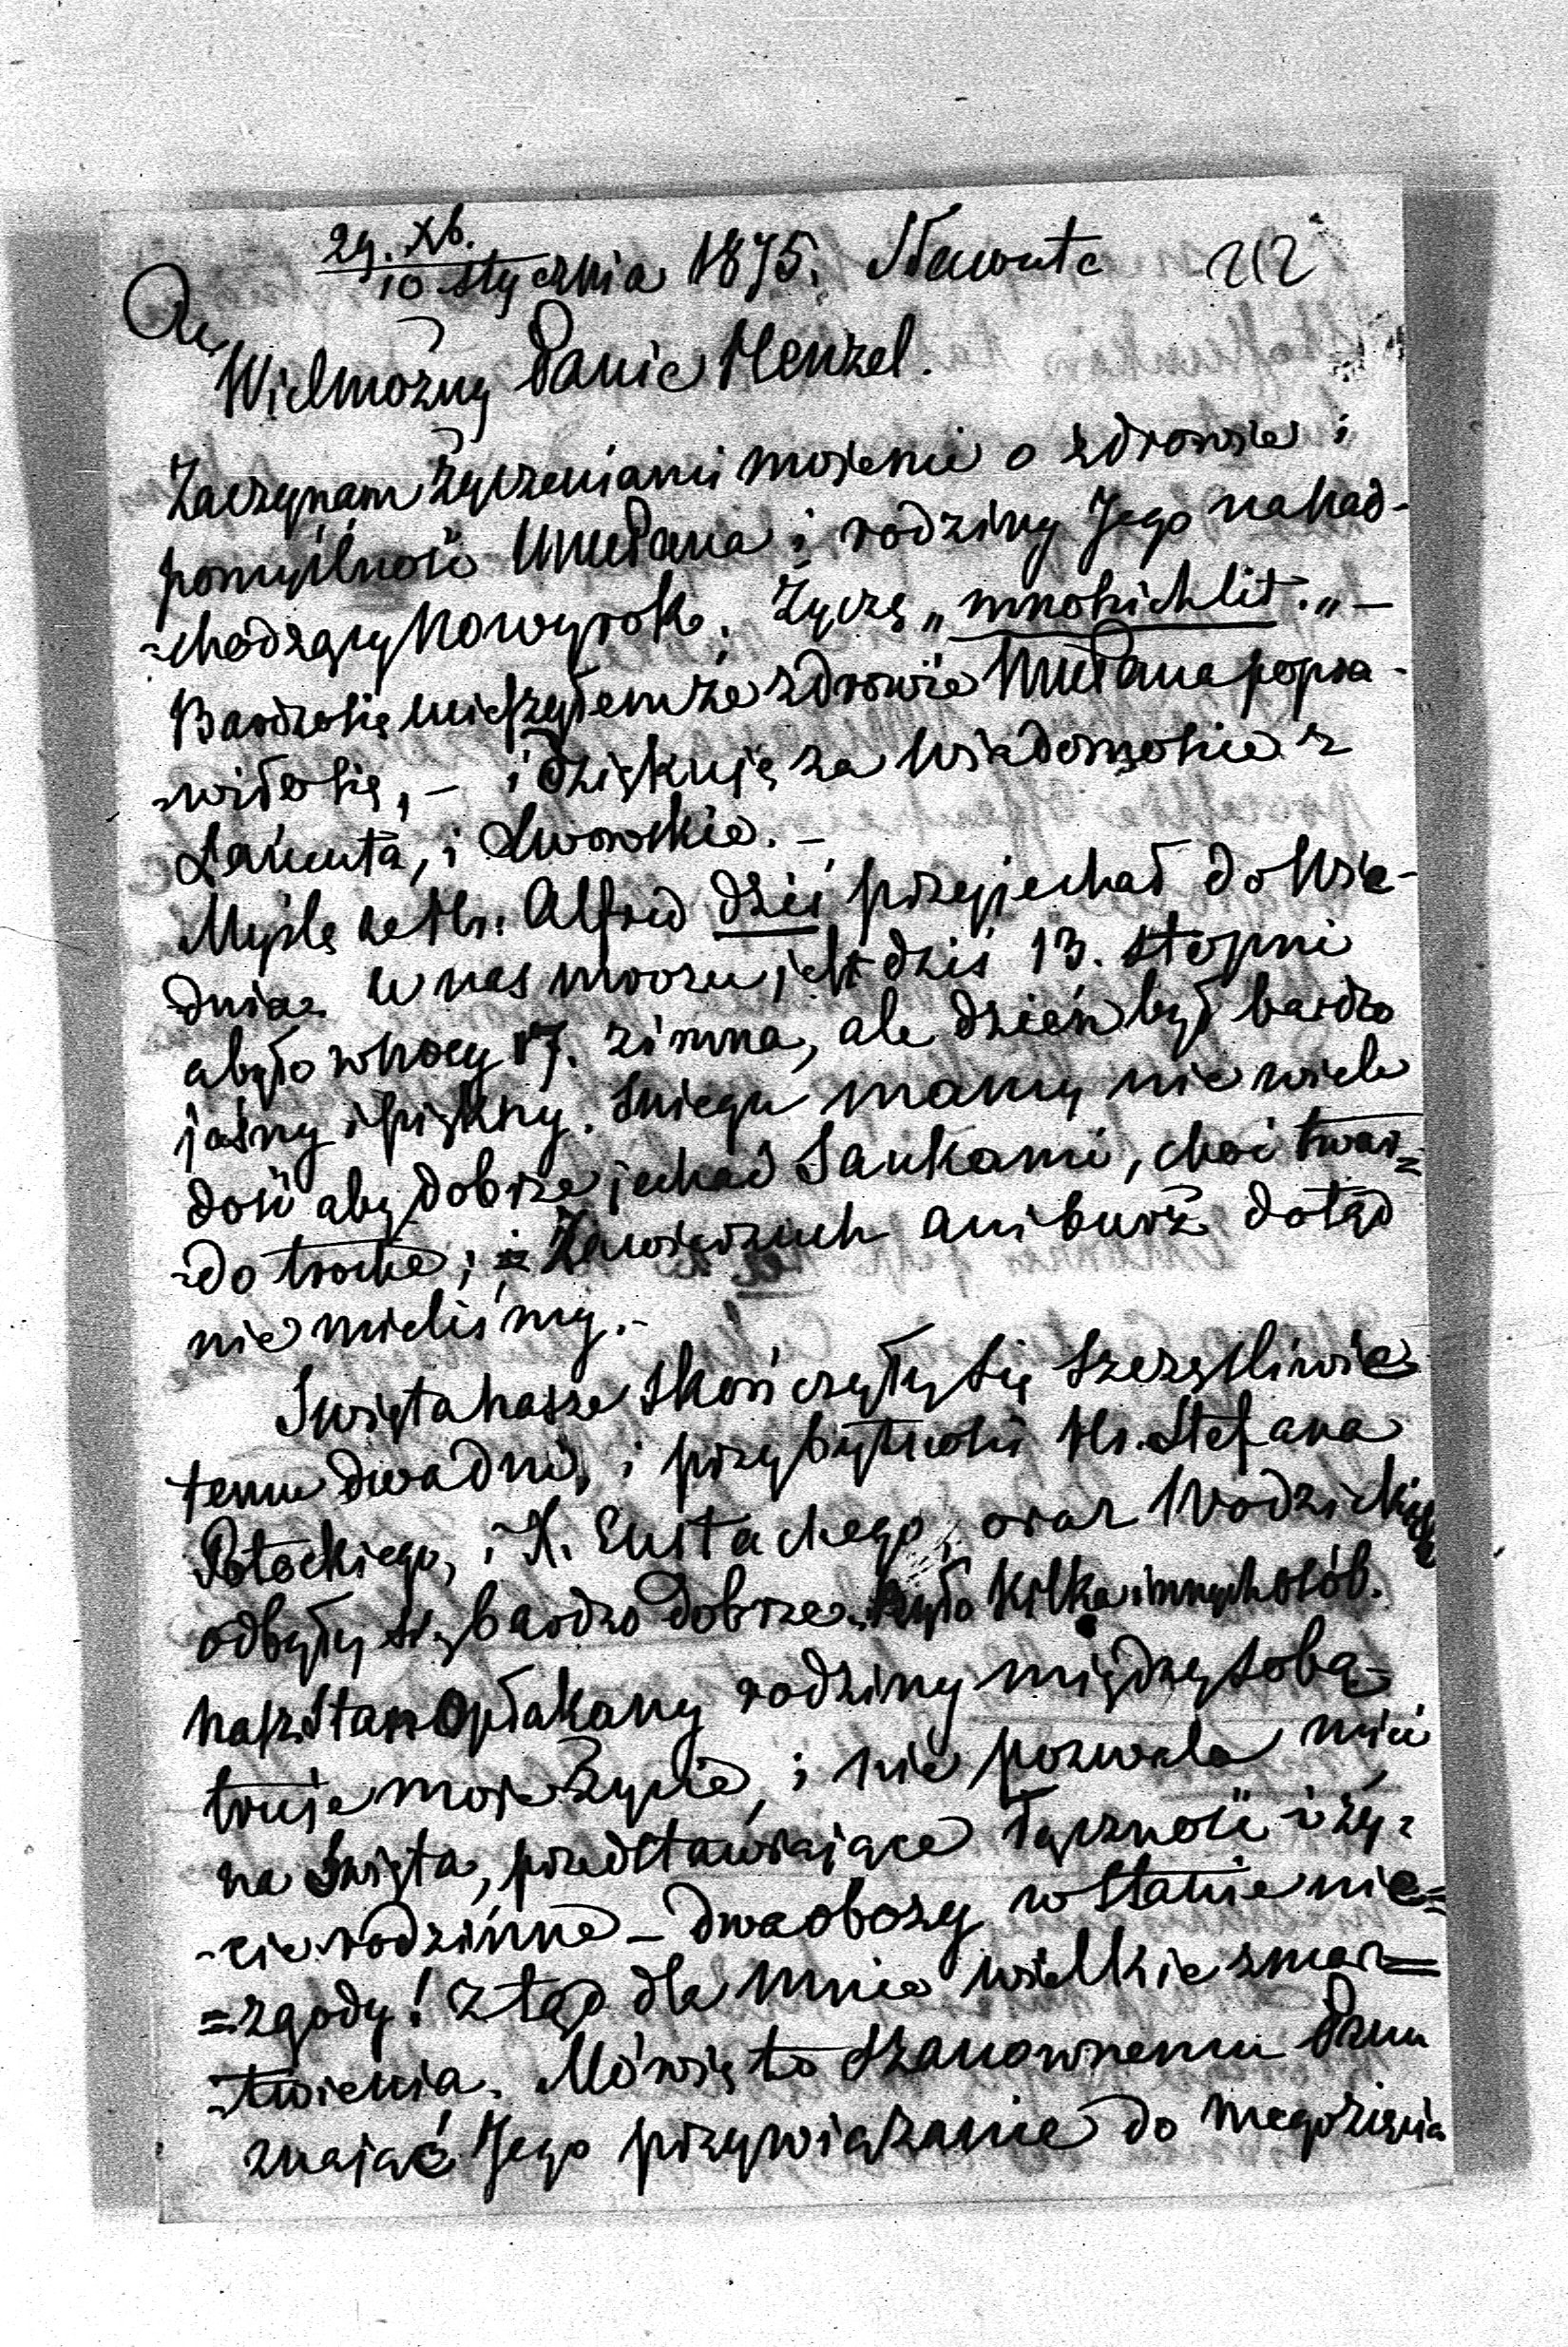 29. Xb.
10 stycznia 1875. Sławuta 212
Wielmożny Panie Menzel.
Zaczynam życzeniami mojemi o zdrowie i
pomyślność WnePana i rodziny Jego na nad-
-chodzący Nowy rok. Życzę „mnohich lit." –
Bardzo się ucieszyłem że zdrowie WnePana popra-
-wiło się, – i dziękuję za wiadomości z
Łańcuta, i Lwowskie. –
Myślę że Hr. Alfred dziś przyjechał do Wie-
dnia. U nas mrozu jest dziś 13. stopni
a było w nocy 17. zimna, ale dzień był bardzo
jaśny i piękny. Sniegu mamy nie wiele
dość aby dobrze jechać Sankami, choć twar=
-do trochę; i Zawieruch ani burz dotąd
nie mieliśmy. –
Swięta nasze skończyły się szczęśliwie
temu dwa dni, i przy bytności Hr. Stefana
Potockiego, i X. Eustachego, oraz Wodzickich
odbyły się bardzo dobrze. Było kilka innych osób.
nasz Stan Opłakany rodziny między sobą
truje moje życie, i nie pozwala mieć
na Święta, przedstawiające łączność i ży=
-cie rodzinne – dwa obozy w stanie nie=
=zgody! Ztąd dla mnie wielkie zmar=
-twienia. Mówię to Szanownemu Panu
znając Jego przywiązanie do mego zięcia